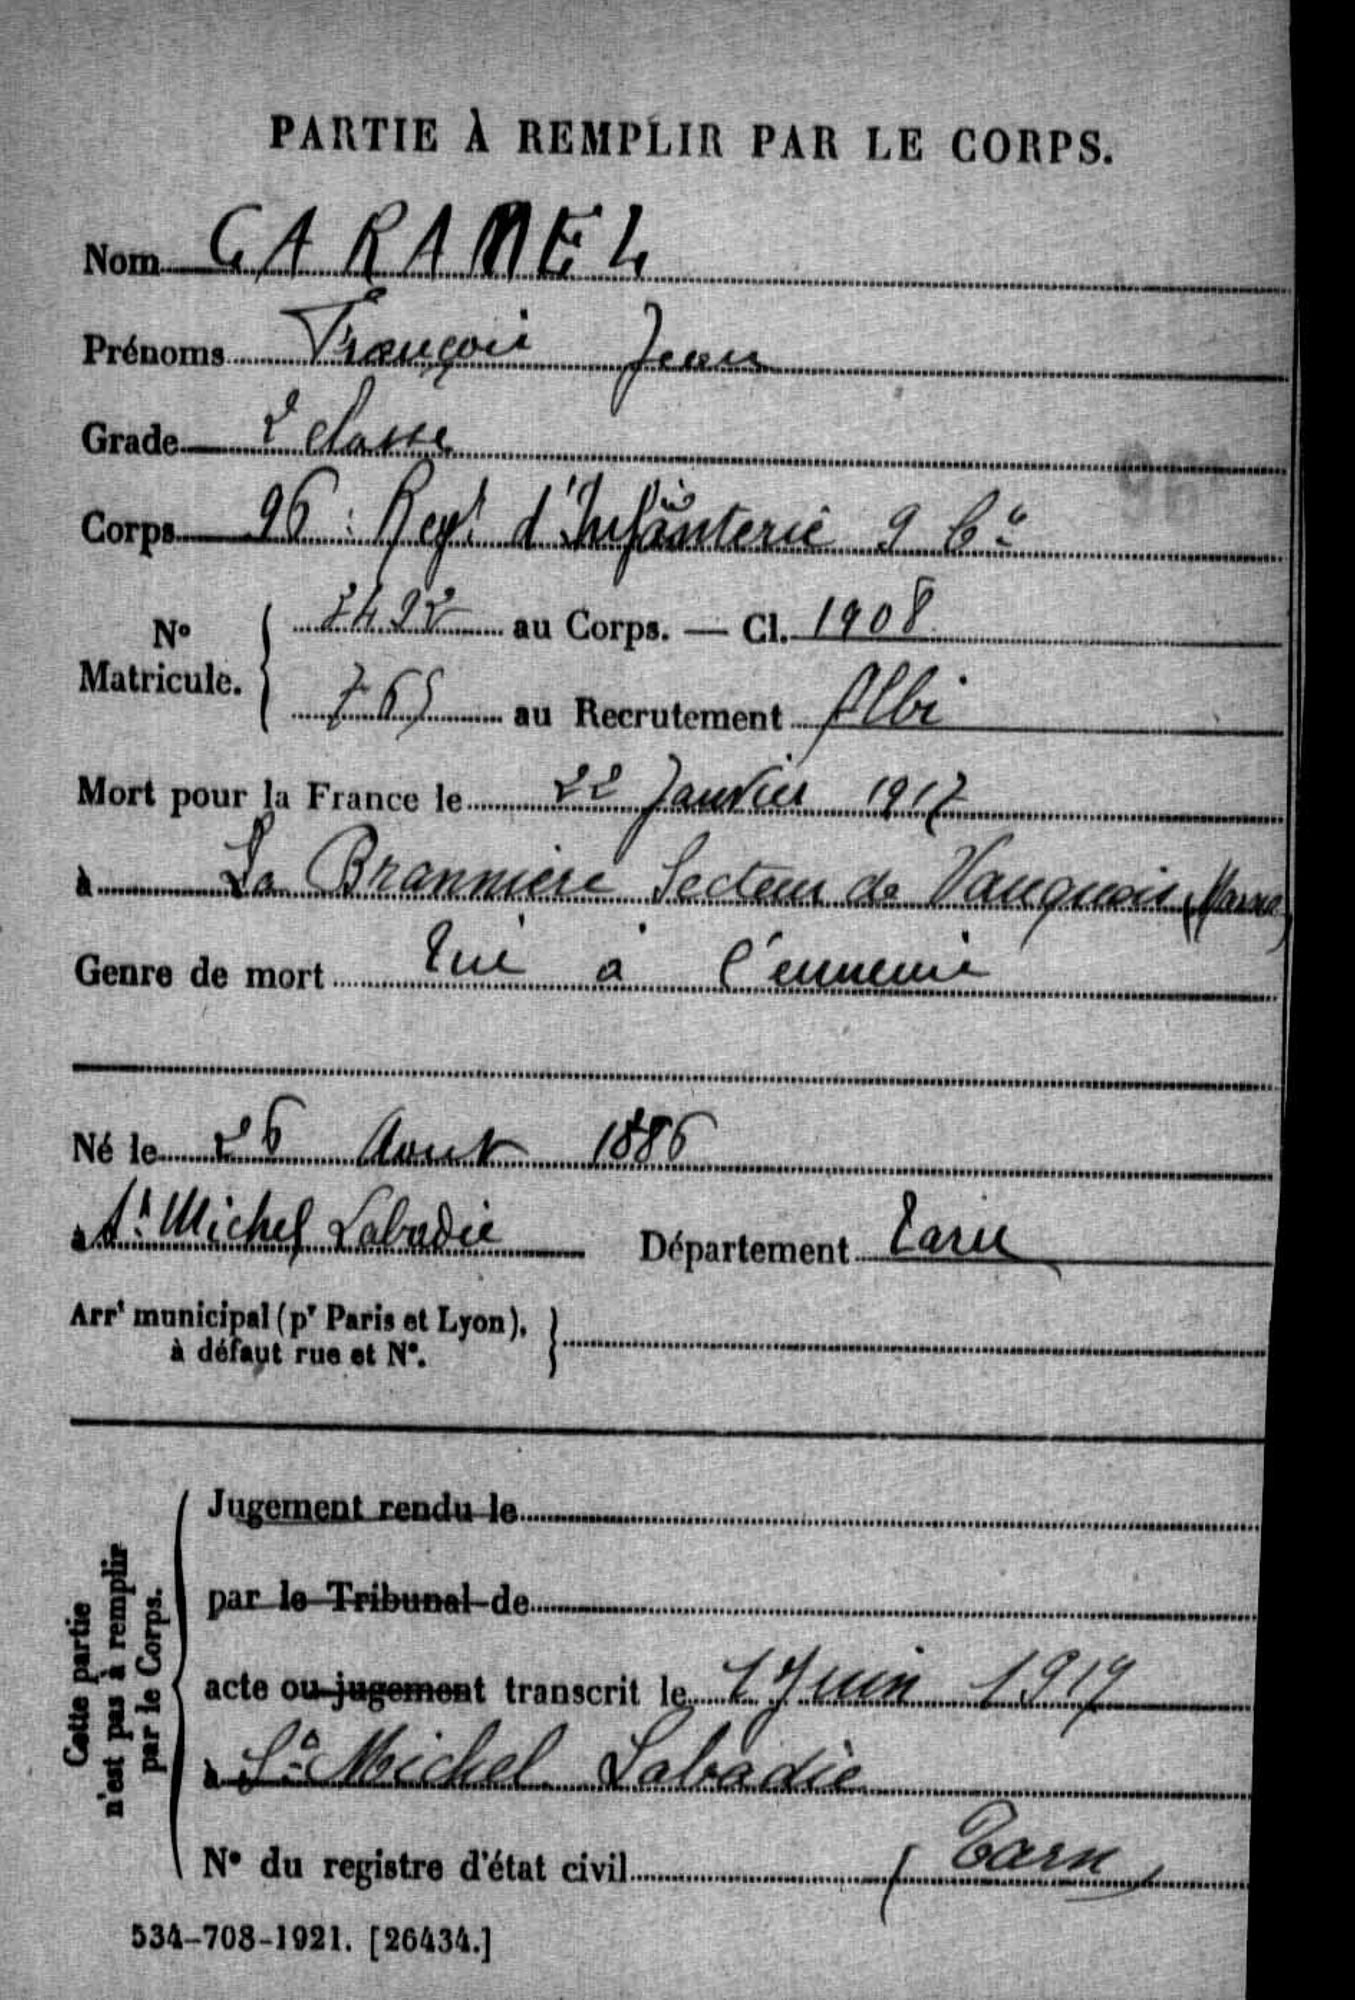 PARTIE À REMPLIR PAR LE CORPS.
Nom CARAMEL
Prénoms François Jean
Grade 2e classe
Corps 96e Regt d'Infanterie 9 Cie
No Matricule. au Corps. — Cl. 1908
765 au Recrutement Albi
Mort pour la France le 22 Janvier 1917
à La Brannière Secteur de Vauquois (Marne)
Genre de mort Tué à l'ennemi
Né le 26 Aout 1886
à St Michel Labadie Département Tarn
Arrt municipal (pr Paris et Lyon),
à défaut rue et No.
Cette partie
n'est pas à remplir
par le Corps.
Jugement rendu le
par le Tribunal de
acte ou jugement transcrit le 1 Juin 1917
à St Michel Labadie
No du registre d'état civil (Tarn)
534-708-1921. [26434.]